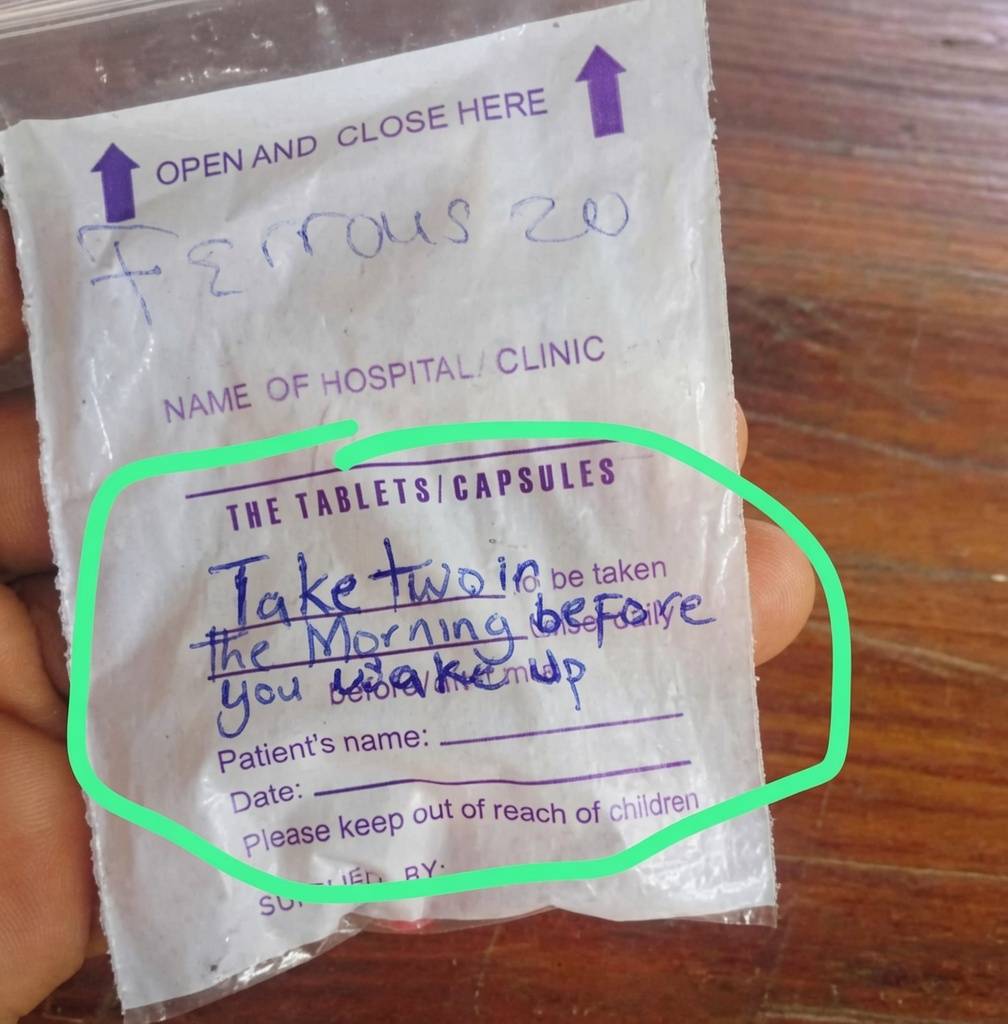 OPEN AND CLOSE HERE
Ferrous 20
NAME OF HOSPITAL/CLINIC
THE TABLETS/CAPSULES
Take two in to be taken
the Morning before daily
you wake up
Patient's name:
Date:
Please keep out of reach of children
BY: